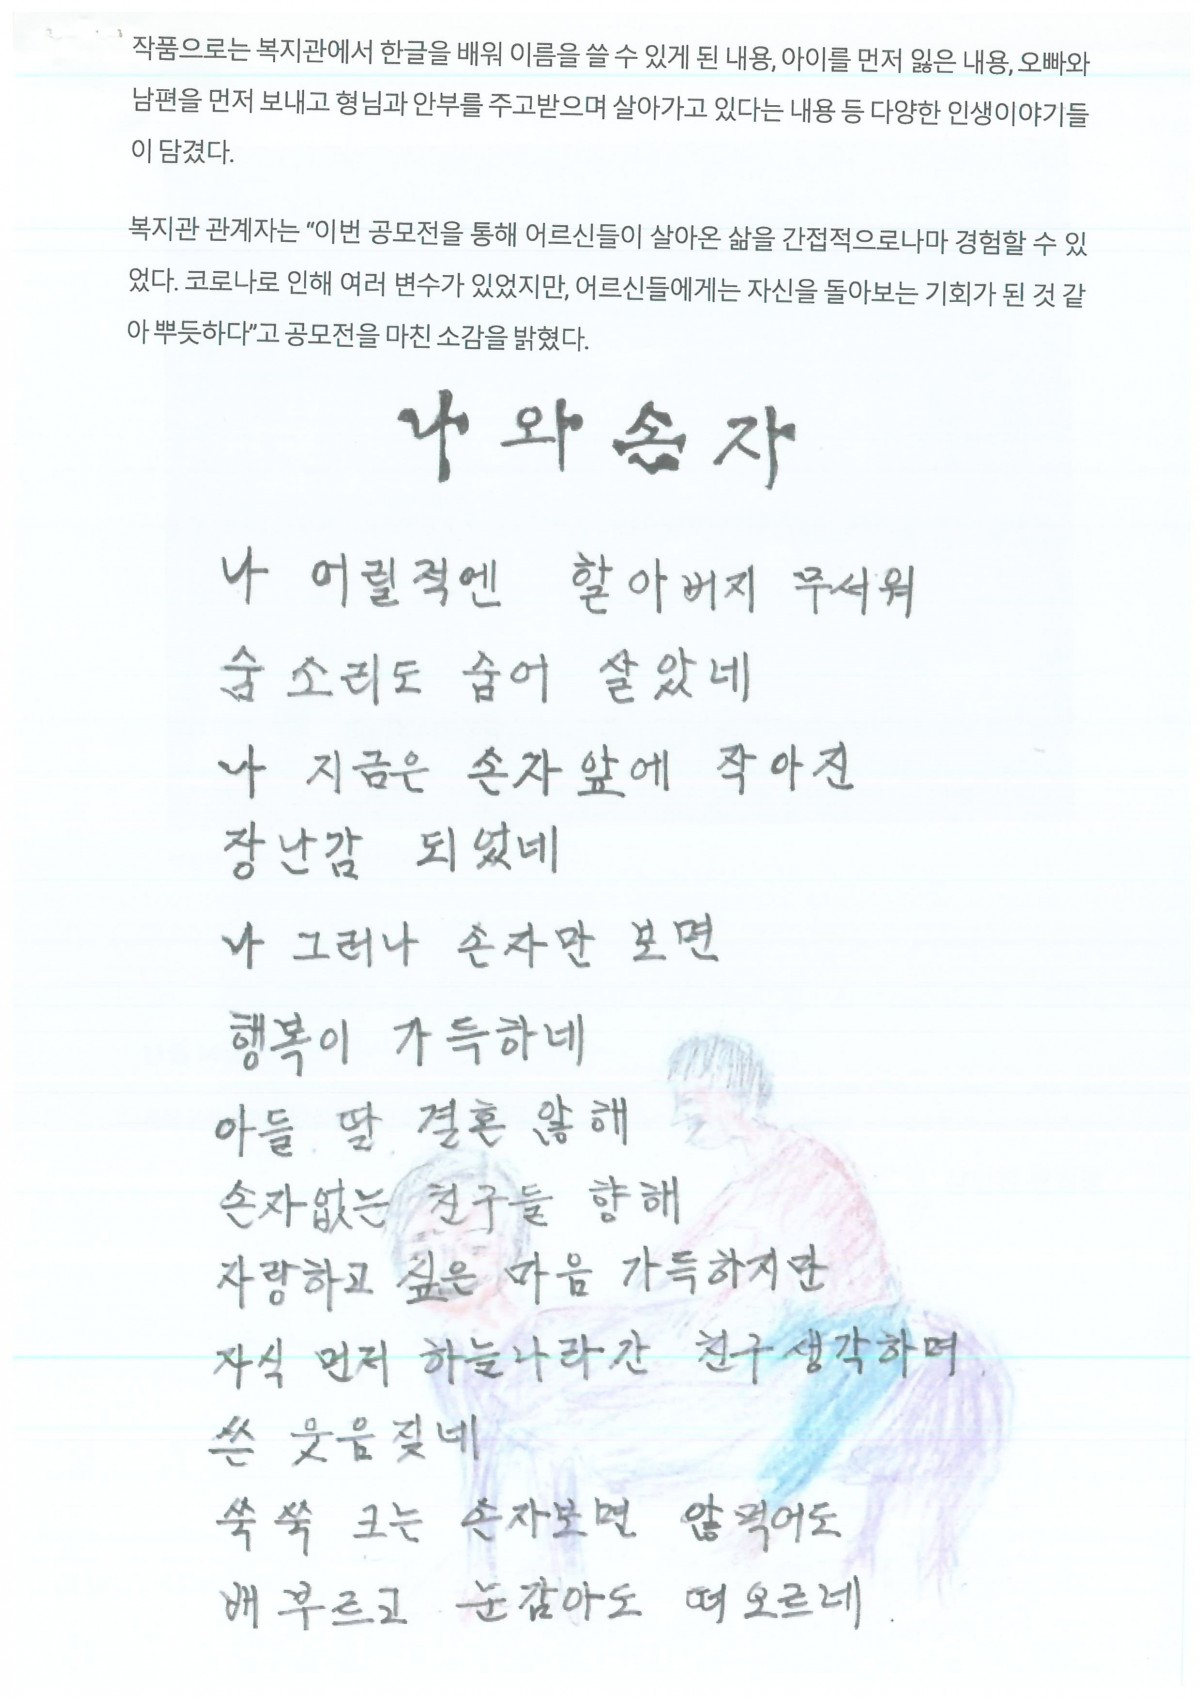 작품으로는 복지관에서 한글을 배워 이름을 쓸 수 있게 된 내용, 아이를 먼저 잃은 내용, 오빠와
남편을 먼저 보내고 형님과 안부를 주고받으며 살아가고 있다는 내용 등 다양한 인생이야기들
이 담겼다.
복지관 관계자는 “이번 공모전을 통해 어르신들이 살아온 삶을 간접적으로나마 경험할 수 있
었다. 코로나로 인해 여러 변수가 있었지만, 어르신들에게는 자신을 돌아보는 기회가 된 것 같
아 뿌듯하다”고 공모전을 마친 소감을 밝혔다.
나 와 손 자
나 어릴적엔 할아버지 무서워
숨소리도 숨어 살았네
나 지금은 손자앞에 작아진
장난감 되었네
나 그러나 손자만 보면
행복이 가득하네
아들 딸 결혼 않해
손자없는 친구들 향해
자랑하고 싶은 마음 가득하지만
자식 먼저 하늘나라간 친구생각하며
쓴 웃음짖네
쑥쑥 크는 손자보면 않먹어도
배부르고 눈감아도 떠오르네.